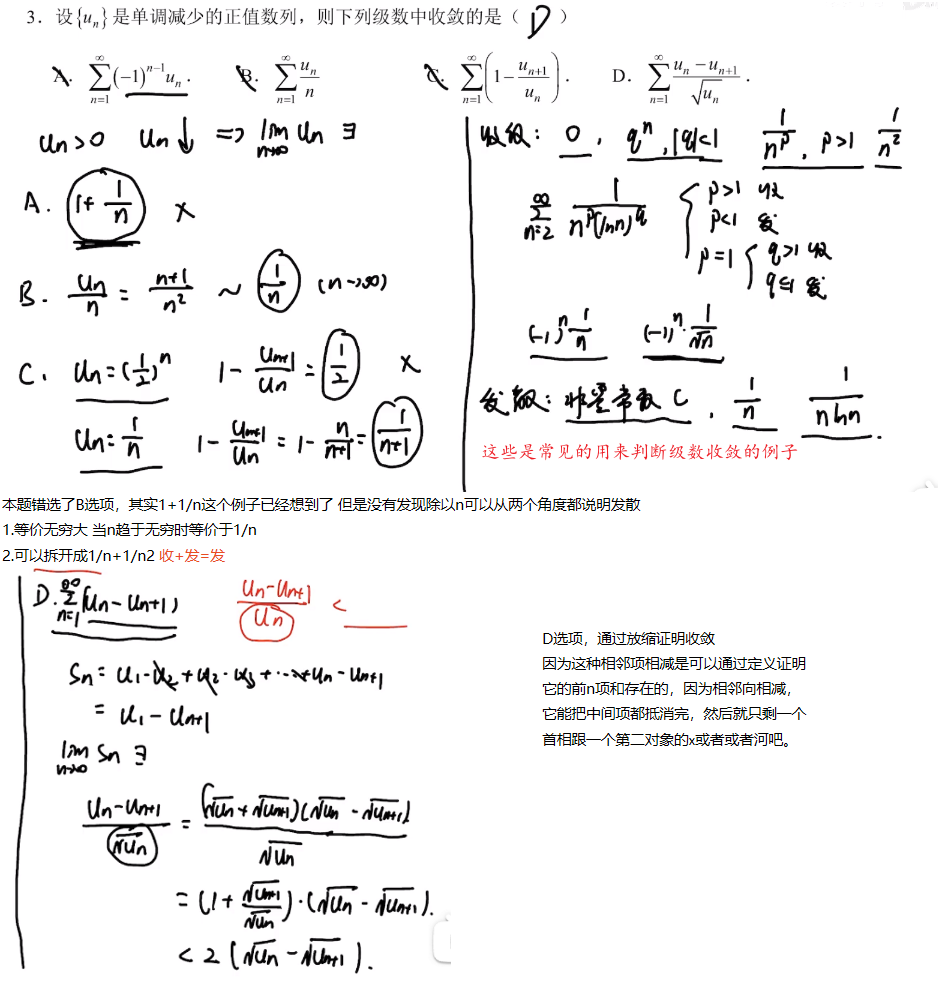 3. 设{uₙ}是单调减少的正值数列，则下列级数中收敛的是（ D ）
A. ∑_{n=1}^{∞}(-1)^{n-1}uₙ. B. ∑_{n=1}^{∞} uₙ/n C. ∑_{n=1}^{∞}(1-u_{n+1}/uₙ). D. ∑_{n=1}^{∞} (uₙ-u_{n+1})/√uₙ.
uₙ>0 uₙ↓ => lim_{n→∞} uₙ ∃
A. if 1/n ×
B. uₙ/n = (n+1)/n² ~ 1/n (n→∞)
C. uₙ=(1/2)ⁿ 1-u_{n+1}/uₙ=1/2 ×
uₙ=1/n 1-u_{n+1}/uₙ=1-n/(n+1)=1/(n+1)
收敛: 0, qⁿ,|q|<1 1/n^p, p>1 1/n²
∑_{n=2}^{∞} 1/(n^p(ln n)^q) { p>1 收
p<1 发
p=1 { q>1 收
q≤1 发
(-1)ⁿ 1/n (-1)ⁿ·1/√n
发散: 非零常数 C, 1/n 1/(n ln n).
这些是常见的用来判断级数收敛的例子
本题错选了B选项，其实1+1/n这个例子已经想到了 但是没有发现除以n可以从两个角度都说明发散
1.等价无穷大 当n趋于无穷时等价于1/n
2.可以拆开成1/n+1/n2 收+发=发
D. ∑_{n=1}^{∞}(uₙ-u_{n+1}) (uₙ-u_{n+1})/uₙ <
Sₙ= u₁-u₂+u₂-u₃+…+uₙ-u_{n+1}
= u₁-u_{n+1}
lim_{n→∞} Sₙ ∃
(uₙ-u_{n+1})/√uₙ = (√uₙ+√u_{n+1})(√uₙ-√u_{n+1})/√uₙ
= (1+√u_{n+1}/√uₙ)·(√uₙ-√u_{n+1}).
< 2(√uₙ-√u_{n+1}).
D选项，通过放缩证明收敛
因为这种相邻项相减是可以通过定义证明
它的前n项和存在的，因为相邻向相减，
它能把中间项都抵消完，然后就只剩一个
首相跟一个第二对象的x或者或者河吧。